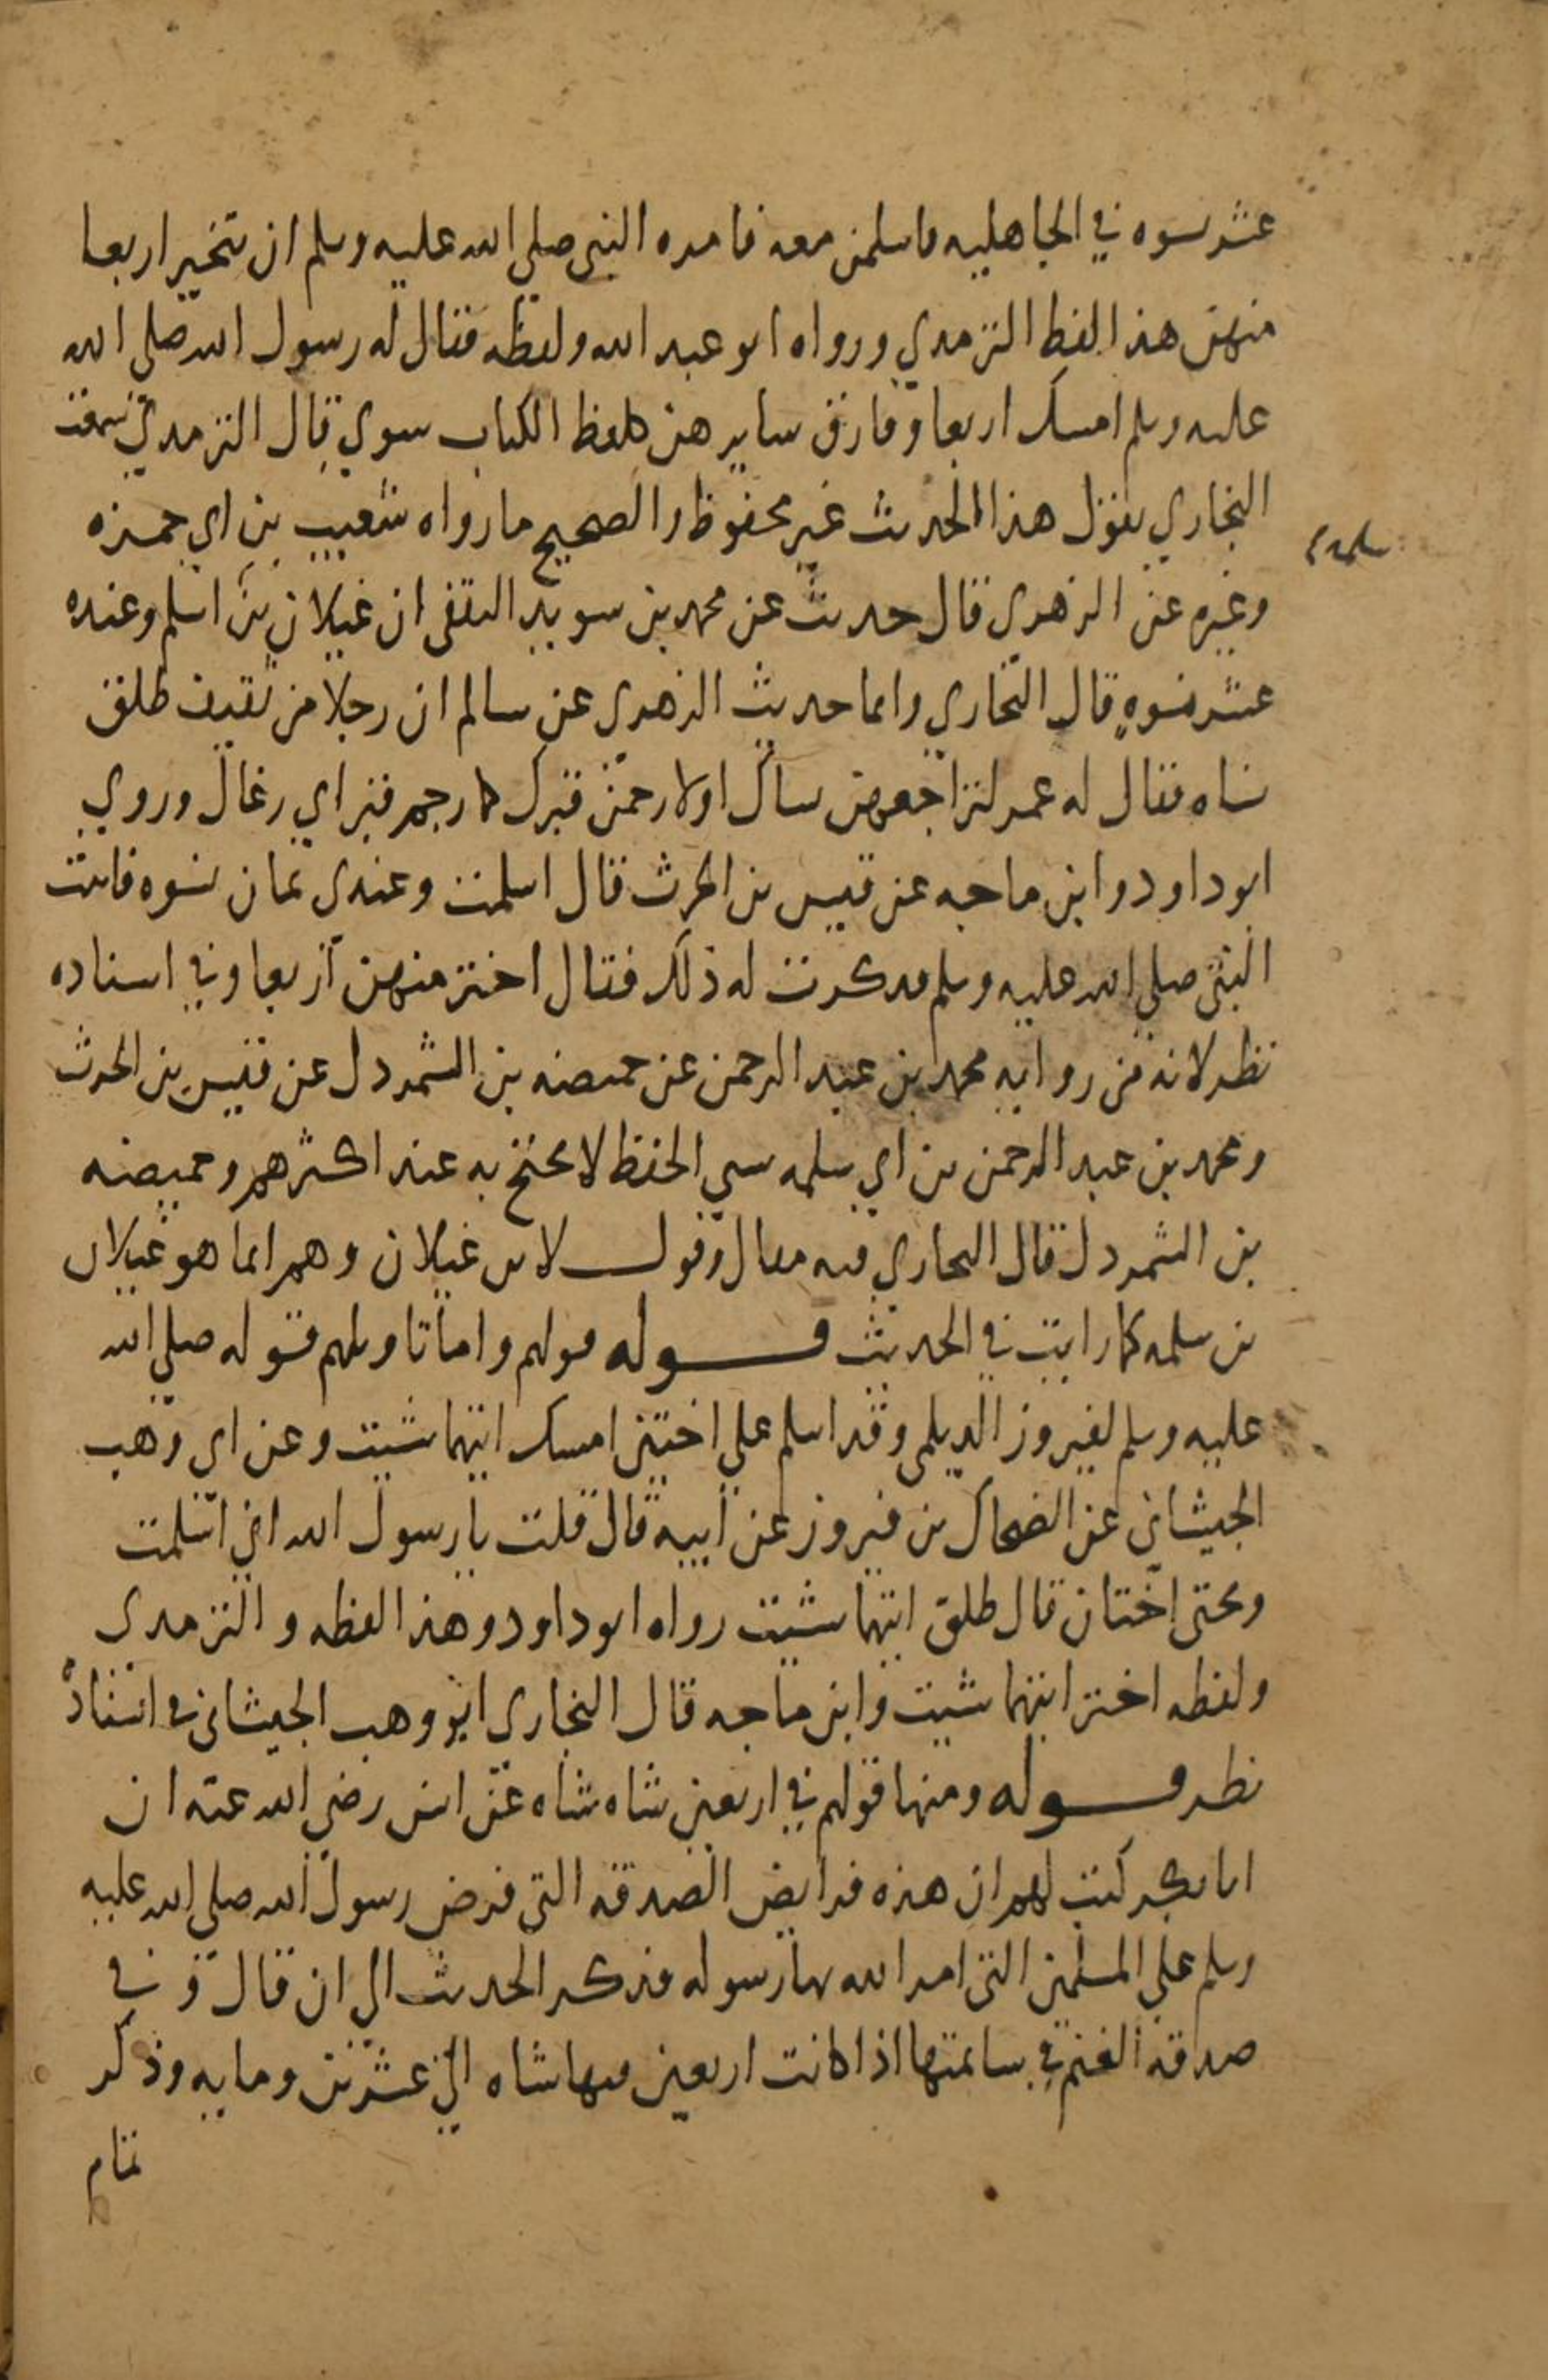 عشر نسوه في الجاهليه فاسلمن معه فامره النبي صلى الله عليه وسلم ان يتخير اربعا
منهن هذا لفظ الترمدي ورواه ابو عبد الله ولفظه فقال له رسول الله صلى الله
عليه وسلم امسك اربعا وفارق سايرهن كلفظ الكتاب سوي قال الترمدي سمعت
البخاري يقول هذا الحديث غير محفوظ والصحيح ما رواه شعيب بن ابي حمزه
سلمه
وغيره عن الزهري قال حديث عن محمد بن سويد الثقفى ان غيلان بن اسلم وعنده
عشر نسوه قال البخاري وانما حديث الزهرى عن سالم ان رجلا من ثقيف طلق
نساه فقال له عمر لتراجعهن نساك اولا رجمن قبرك كما رجم قبر ابي رغال وروي
ابو داود وابن ماجه عن قيس بن الحرث قال اسلمت وعندى ثمان نسوه فاتيت
النبى صلي الله عليه وسلم فدكرت له ذلك فقال اختر منهن اربعا وفي اسناده
نظر لانه من روايه محمد بن عبد الرحمن عن حميضه بن الشمردل عن قيس بن الحرث
ومحمد بن عبد الرحمن بن ابي سلمه سي الحفظ لا يحتج به عند اكثرهم وحميضه
بن الشمردل قال البخاري فيه مقال وقول لابن غيلان وهم انما هو غيلان
بن سلمه كما رايت في الحديث قوله قولهم واما تاويلهم قوله صلي الله
عليه وسلم لفيروز الديلمى وقد اسلم علي اختين امسك ايتهما شيت وعن ابى وهب
الجيشاني عن الضحاك بن فيروز عن ابيه قال قلت يا رسول الله اني اسلمت
وتحتى اختان قال طلق ايتهما شيت رواه ابو داود وهذا لفظه والترمدى
ولفظه اختر ايتهما شيت وابن ماجه قال البخارى ابو وهب الجيشانى في اسناده
نظر قوله ومنها قولهم في اربعين شاه شاه عن انس رضي الله عنه ان
ابا بكر كتب لهم ان هذه فرايض الصدقه التى فرض رسول الله صلي الله عليه
وسلم علي المسلمين التى امر الله بها رسوله فذكر الحديث الي ان قال وفي
صدقه الغنم في سايمتها اذا كانت اربعين فيها شاه الي عشرين ومايه وذكر
تمام